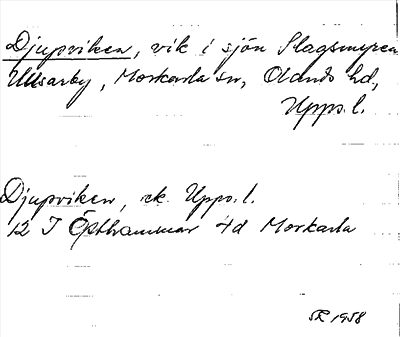 Djupviken, vik i sjön Slagsmyren
Ullsarby, Morkarla sn, Olands hd,
Upps. l.
Djupviken, ek. Upps. l.
12 I Östhammar 4d Morkarla
SR 1958